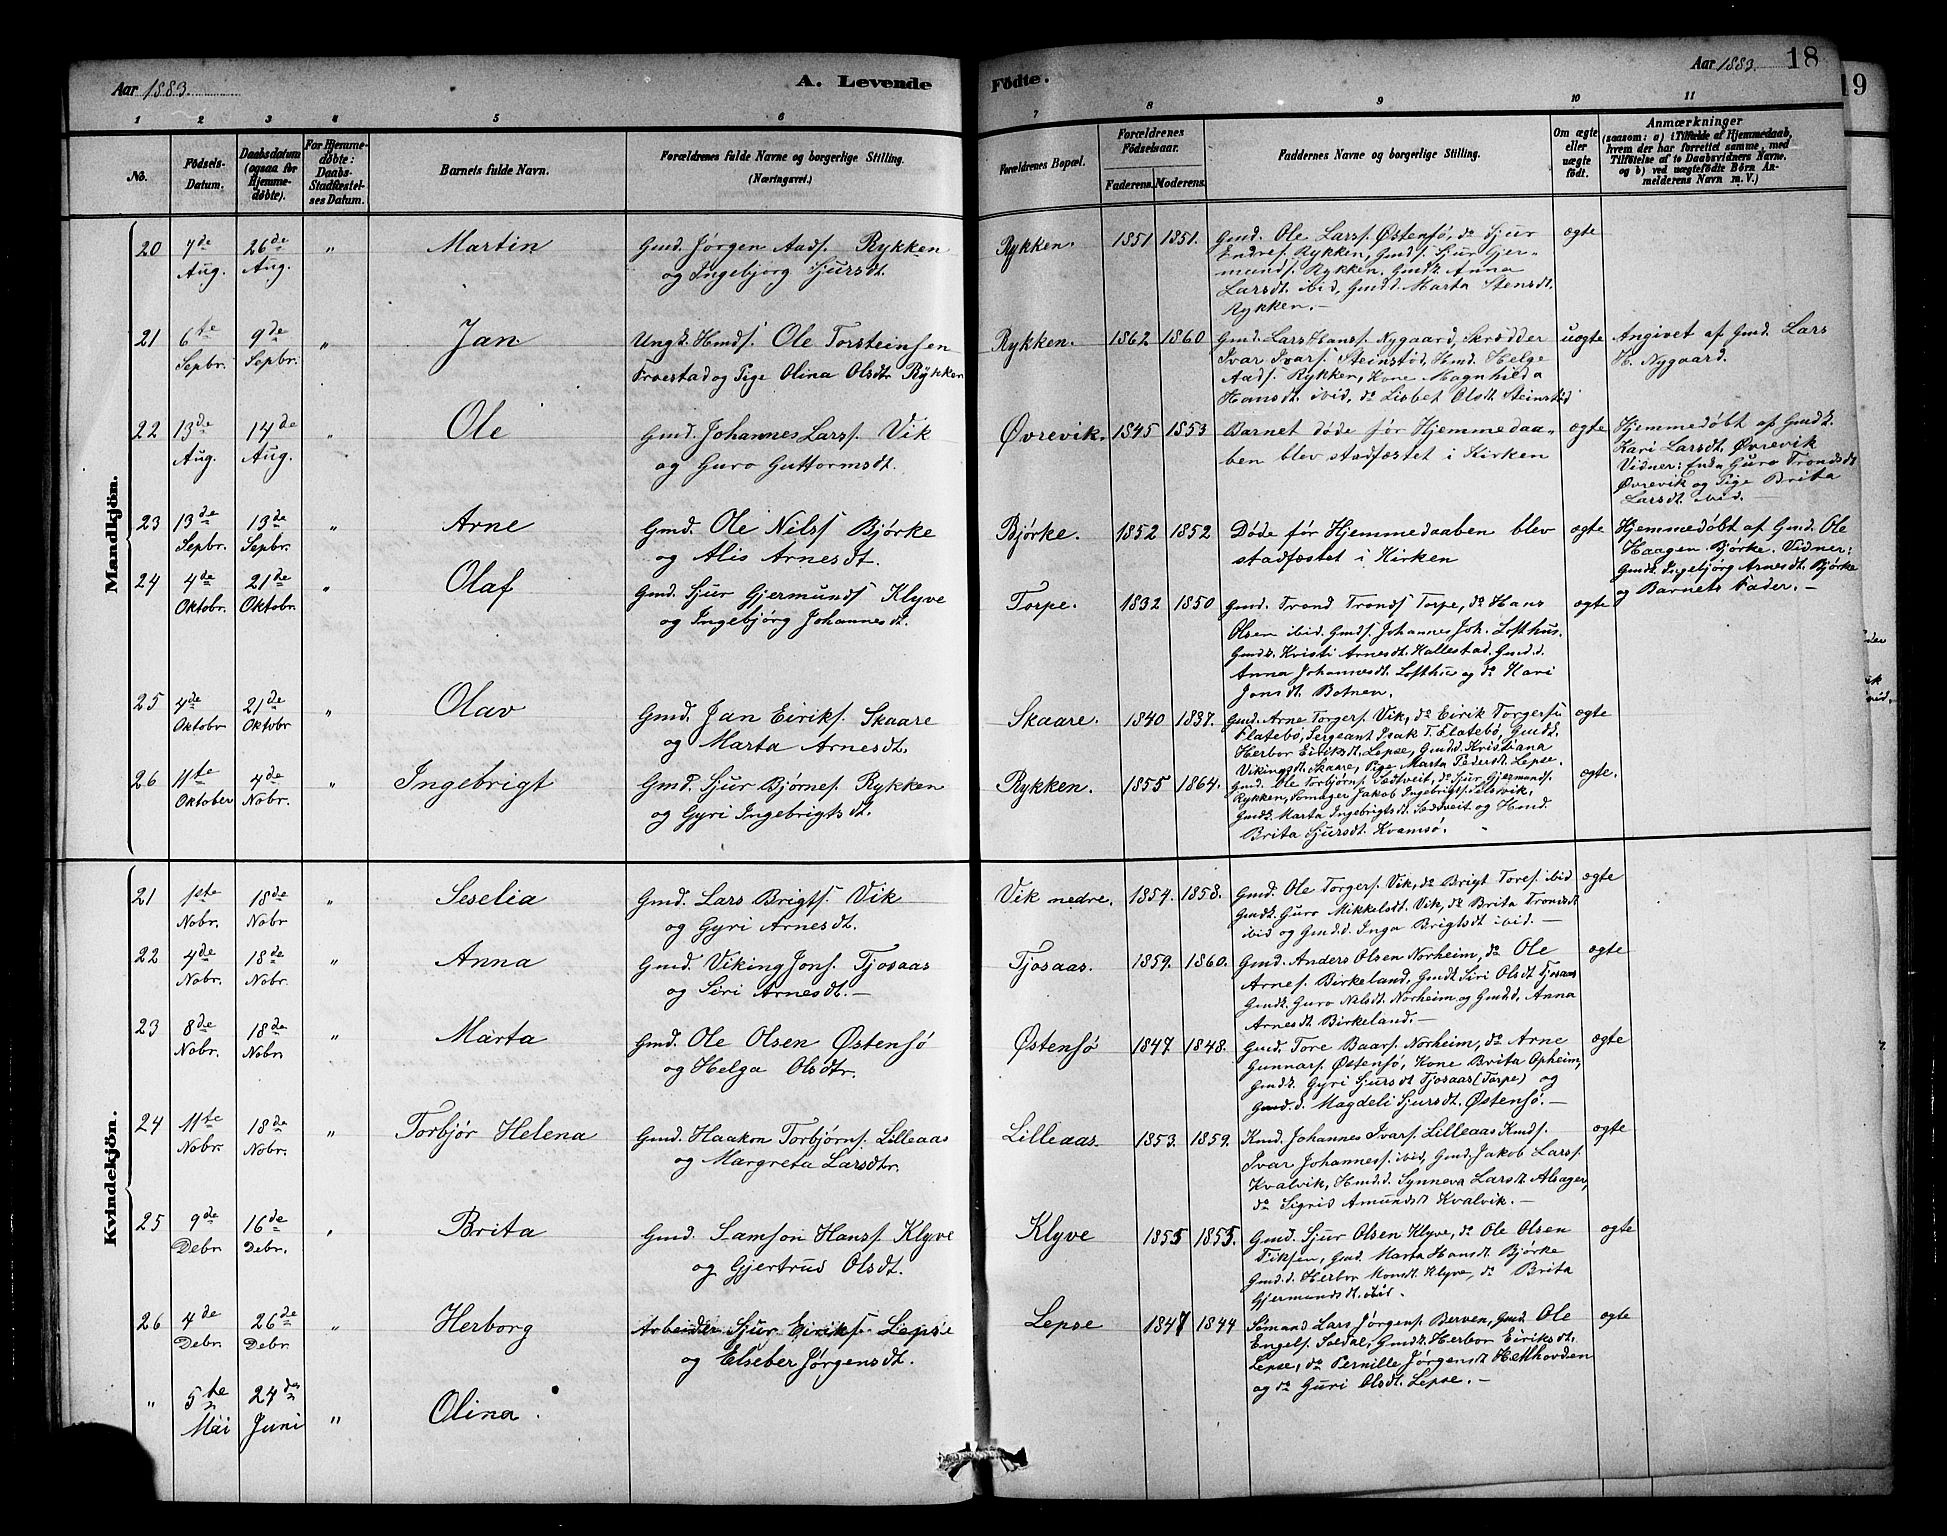 Aar 1883.
A. Levende Födte.
Aar 1883. 18
19
1 2 3 4 5 6 7 8 9 10 11
No.
Födsels-
Datum.
Daabsdatum
(ogsaa for
Hjemme-
döbte).
For Hjemme-
döbte:
Daabs-
Stadfæstel-
ses Datum.
Barnets fulde Navn.
Forældrenes fulde Navne og borgerlige Stilling.
(Næringsvei.)
Forældrenes Bopæl.
Forældrenes
Födselsaar.
Faderens. Moderens.
Faddernes Navne og borgerlige Stilling.
Om ægte
eller
uægte
födt.
Anmærkninger
(saasom: a) i Tilfælde af Hjemmedaab,
hvem der har forrettet samme, med
Tilföielse af to Daabsvidners Navne,
og b) ved uægtefödte Börn An-
melderens Navn m. V.)
Mandkjön.
20 7de Aug. 26de Aug. " Martin
Gmd. Jørgen Aads. Rykken
og Ingebjorg Sjursdt.
Rykken. 1851 1851.
Gmd. Ole Larss. Østensø, do Sjur
Endres. Rykken, Gmds. Sjur Gjer-
munds. Rykken. Gmdk. Anna
Larsdt. ibid, Gmdd. Marta Stensdt.
Rykken. —
ægte
21 6te Sepbr. 9de Sepbr. " Jan
Ungk. Hmds. Ole Torsteinsen
Froestad og Pige Olina Olsdtr Rykken
Rykken. 1862 1860.
Gmd. Lars Hanss. Nygaard, Skrædder
Ivar Ivars. Steinstød, Hmd. Helge
Aads. Rykken, Kone Magnhilda
Hansdt. ibid, do Lisbet Olsdt. Steinstød
uægte
Angivet af Gmd. Lars
H. Nygaard.
22 13de Aug. 14de Aug. " Ole
Gmd. Johannes Larss. Vik
og Guro Guttormsdt.
Øvrevik. 1845 1853
Barnet døde før Hjemmedaa-
ben blev stadfæstet i Kirken
ægte
Hjemmedøbt af Gmdk.
Kari Larsdt. Øvrevik
Vidner: Enke Guro Trondsdt
Øvrevik og Pige Brita
Larsdt. ibid. —
23 13de Sepbr. 13de Sepbr. " Arne
Gmd. Ole Nilss. Bjørke
og Alis Arnesdt.
Bjørke. 1852 1852
Døde før Hjemmedaaben blev
stadfæstet i Kirken
ægte
Hjemmedøbt af Gmd. Ole
Haagen Bjørke. Vidner:
Gmdk. Ingebjørg Arnesdt. Bjørke
og Barnets Fader. —
24 4de Oktobr. 21de Oktobr. " Olaf
Gmd. Sjur Gjermunds. Klyve
og Ingebjørg Johannesdt.
Torpe. 1832 1850
Gmd. Trond Tronds. Torpe, do Hans
Olsen ibid. Gmds. Johannes Joh. Lofthus.
Gmdk. Kristi Arnesdt. Hallestad. Gmd.d.
Anna Johannesdt. Lofthus og do Kari
Jonsdt. Botnen.
ægte
25 4de Oktobr 21de Oktobr " Olav
Gmd. Jan Eiriks. Skaare
og Marta Arnesdt.
Skaare. 1840 1837.
Gmd. Arne Torgers. Vik, do Eirik Torgers.
Flatebø, Sergeant Isak T. Flatebø, Gmdk.
Herbor Eiriksdt. Lepse, Gmd.d. Kristiana
Vikingsdt. Skaare, Pige Marta Pedersdt. Lepse.
ægte
26 11te Oktober 4de Nobr. " Ingebrigt
Gmd. Sjur Bjørnes. Rykken
og Gyri Ingebrigtsdt.
Rykken. 1855 1864.
Gmd. Ole Torbjørns. Sædtveit, do Sjur Gjermunds.
Rykken, Jakob Ingebrigts.
Gmdk. Marta Ingebrigtsdt. Sædtveit og Hmd.
Brita Sjursdt. Kvamsø.
ægte.
Kvindekjön.
21 1ste Nobr. 18de Nobr " Seselia
Gmd. Lars Brigts. Vik
og Gyri Arnesdt.
Vik nedre. 1854. 1858.
Gmd. Ole Torgers. Vik, do Brigt Tores. ibid
Gmdk. Guro Mikkelsdt. Vik, do Brita Trondsdt
ibid og Gmd.d. Inga Brigtsdt ibid. —
ægte
22 4de Nobr. 18de Nobr. " Anna
Gmd. Viking Jons. Tjosaas
og Siri Arnesdt. —
Tjosaas. 1859. 1860.
Gmd. Anders Olsen Norheim, do Ole
Arnes. Birkeland, Gmdk. Siri Olsdt Tjosaas
Gmdk. Guro Nilsdt. Norheim og Gmd.d. Anna
Arnesdt Birkeland. —
ægte
23 8de Nobr. 18de Nobr. " Marta
Gmd. Ole Olsen Østensø
og Helga Olsdtr.
Østensø 1847 1848.
Gmd. Tore Baars. Norheim, do Arne
Gunnars. Østensø, Kone Brita Opheim,
Gmdk. Gyri Sjursdt Tjosaas (Torpe) og
Gmd.d. Magdeli Sjursdt. Østensø. —
ægte
24 11te Nobr. 18de Nobr. " Torbjør Helena
Gmd. Haakon Torbjørns. Lilleaas
og Margreta Larsdtr.
Lilleaas. 1853. 1859.
Kmd. Johannes Ivars. Lilleaas Kmds.
Ivar Johanness. ibid, Gmd. Jakob Larss.
Kvalvik, Hmd.d. Synneva Larsdt Alsager,
do Sigrid Amundsdt Kvalvik. —
ægte
25 9de Debr. 16de Debr. " Brita
Gmd. Samson Hanss. Klyve
og Gjertrud Olsdt.
Klyve 1855 1855.
Gmd. Sjur Olsen Klyve, do Ole Olsen
Tiksen, Gmd. Marta Hansdt Bjørke
Gmd.d. Herbor Monsdt. Klyve, do Brita
Gjermundsdt. ibid.
ægte
26 4de Debr. 26de Debr. " Herborg
Arbeider Sjur Eiriks. Lepse
og Elseber Jørgensdt.
Lepse 1847 1844
Sømand Lars Jørgens. Berven, Gmd. Ole
Engels. Soldal, Gmdk. Herbor Eiriksdt.
Lepse, do Pernille Jørgensdt
og do Guri Olsdt. Lepse. —
ægte
" 5te Mai 24de Juni " Olina.